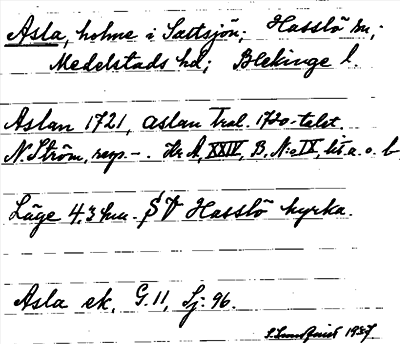 Asla, holme i Saltsjön; Hasslö sn;
Medelstads hd; Blekinge l.
Aslan 1721, aslan Tral. 1720-talet.
N. Ström, resp. -. Hr A, XXIV, B, N:o IX, lit. a. o. b
Läge 4,3 km. SV Hasslö kyrka.
Asla ek. G. 11, Lj. 96.
1937